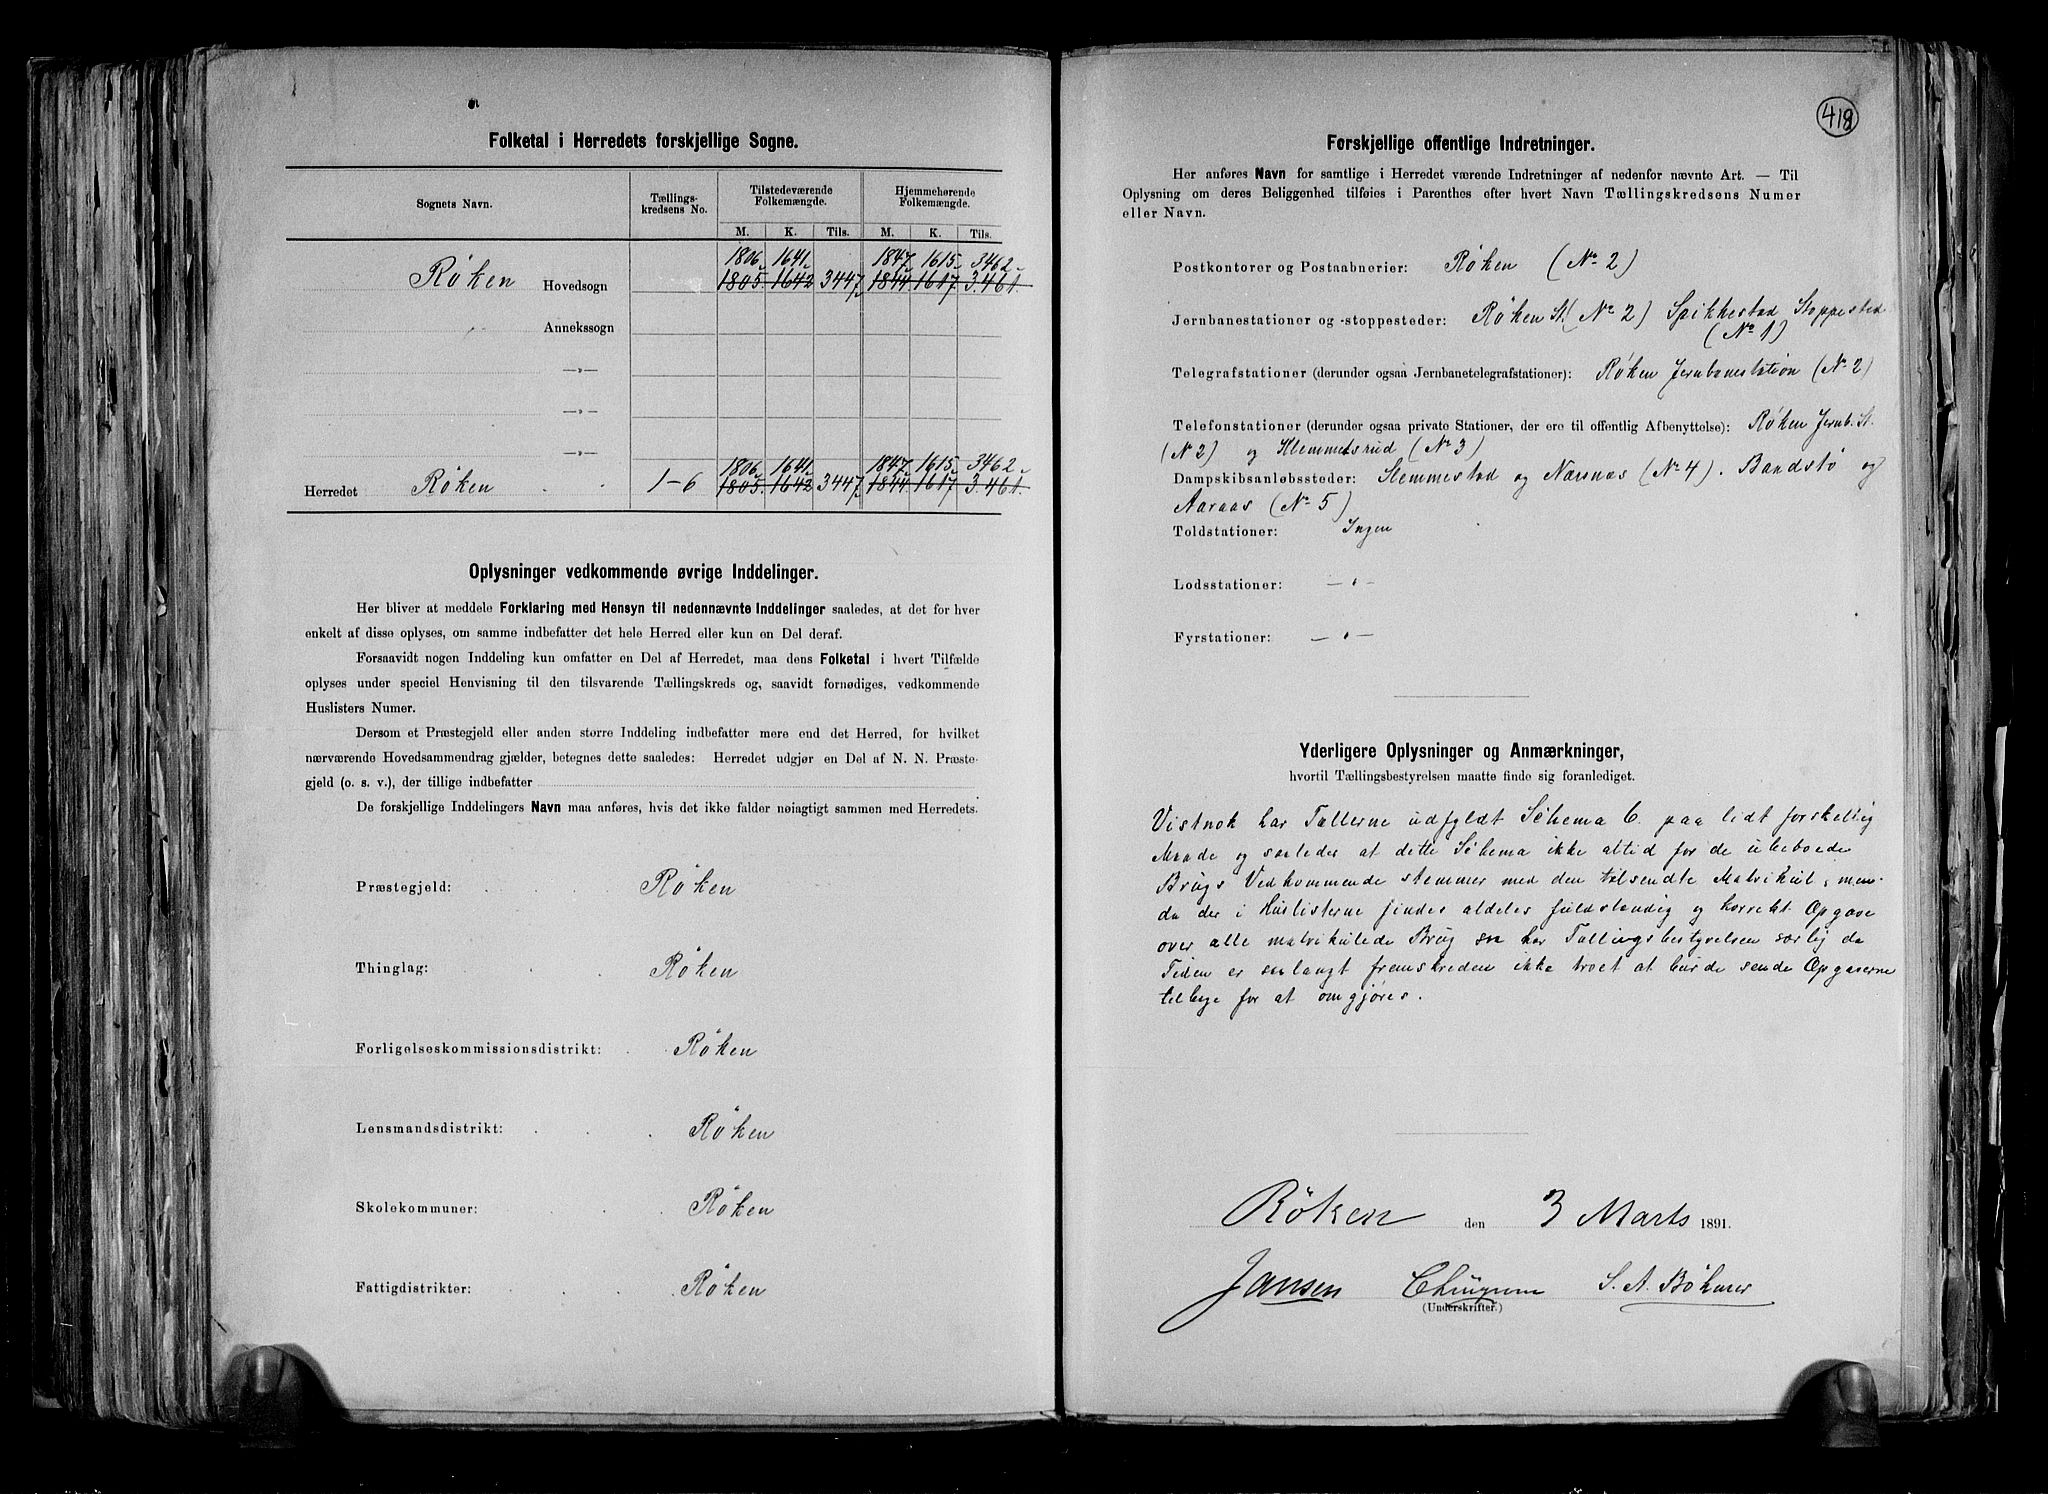 Folketal i Herredets forskjellige Sogne.
Sognets Navn. Tællings-kredsens No. Tilstedeværende Folkemængde. Hjemmehørende Folkemængde.
M. K. Tils. M. K. Tils.
1806 1641 1847 1615 3462
Røken Hovedsogn 1805 1642 3447 1844 1617 3.461.
Annekssogn
—„—
—„—
—„—
1806 1641 1847 1615 3462
Herredet Røken 1-6 1805 1642 3447 1844 1617 3.461.
Oplysninger vedkommende øvrige Inddelinger.
Her bliver at meddele Forklaring med Hensyn til nedennævnte Inddelinger saaledes, at det for hver
enkelt af disse oplyses, om samme indbefatter det hele Herred eller kun en Del deraf.
Forsaavidt nogen Inddeling kun omfatter en Del af Herredet, maa dens Folketal i hvert Tilfælde
oplyses under speciel Henvisning til den tilsvarende Tællingskreds og, saavidt fornødiges, vedkommende
Huslisters Numer.
Dersom et Præstegjeld eller anden større Inddeling indbefatter mere end det Herred, for hvilket
nærværende Hovedsammendrag gjælder, betegnes dette saaledes: Herredet udgjør en Del af N. N. Præste-
gjeld (o. s. v.), der tillige indbefatter
De forskjellige Inddelingers Navn maa anføres, hvis det ikke falder nøiagtigt sammen med Herredets.
Præstegjeld: Røken
Thinglag: Røken
Forligelseskommissionsdistrikt: Røken
Lensmandsdistrikt: Røken
Skolekommuner: Røken
Fattigdistrikter: Røken
418
Forskjellige offentlige Indretninger.
Her anføres Navn for samtlige i Herredet værende Indretninger af nedenfor nævnte Art. — Til
Oplysning om deres Beliggenhed tilføies i Parenthes efter hvert Navn Tællingskredsens Numer
eller Navn.
Postkontorer og Postaabnerier: Røken (No 2)
Jernbanestationer og -stoppesteder: Røken St. (No 2) Spikkestad Stoppested
(No 1)
Telegrafstationer (derunder ogsaa Jernbanetelegrafstationer): Røken Jernbanestation (No 2)
Telefonstationer (derunder ogsaa private Stationer, der ere til offentlig Afbenyttelse): Røken Jernb. St.
(No 2) og Klemmetsrud (No 3)
Dampskibsanløbssteder: Slemmestad og Nærsnæs (No 4). Baadstø og
Aaraas (No 5)
Toldstationer: Ingen
Lodsstationer: —„—
Fyrstationer: —„—
Yderligere Oplysninger og Anmærkninger,
hvortil Tællingsbestyrelsen maatte finde sig foranlediget.
Vistnok har Tællerne udfyldt Schema C. paa lidt forskellig
Maade og saaledes at dette Schema ikke altid for de ubeboede
Brugs Vedkommende stemmer med den tilsendte Matrikul, men
da der i Huslisterne findes aldeles fuldstændig og korrekt Opgave
over alle matrikulede Brug saa har Tællingsbestyrelsen særlig da
Tiden er saalangt fremskreden ikke troet at burde sende Opgaverne
tilbage for at omgjøres.
Røken den 3 Marts 1891.
Jansen S. A. Bøhmer
(Underskrifter.)